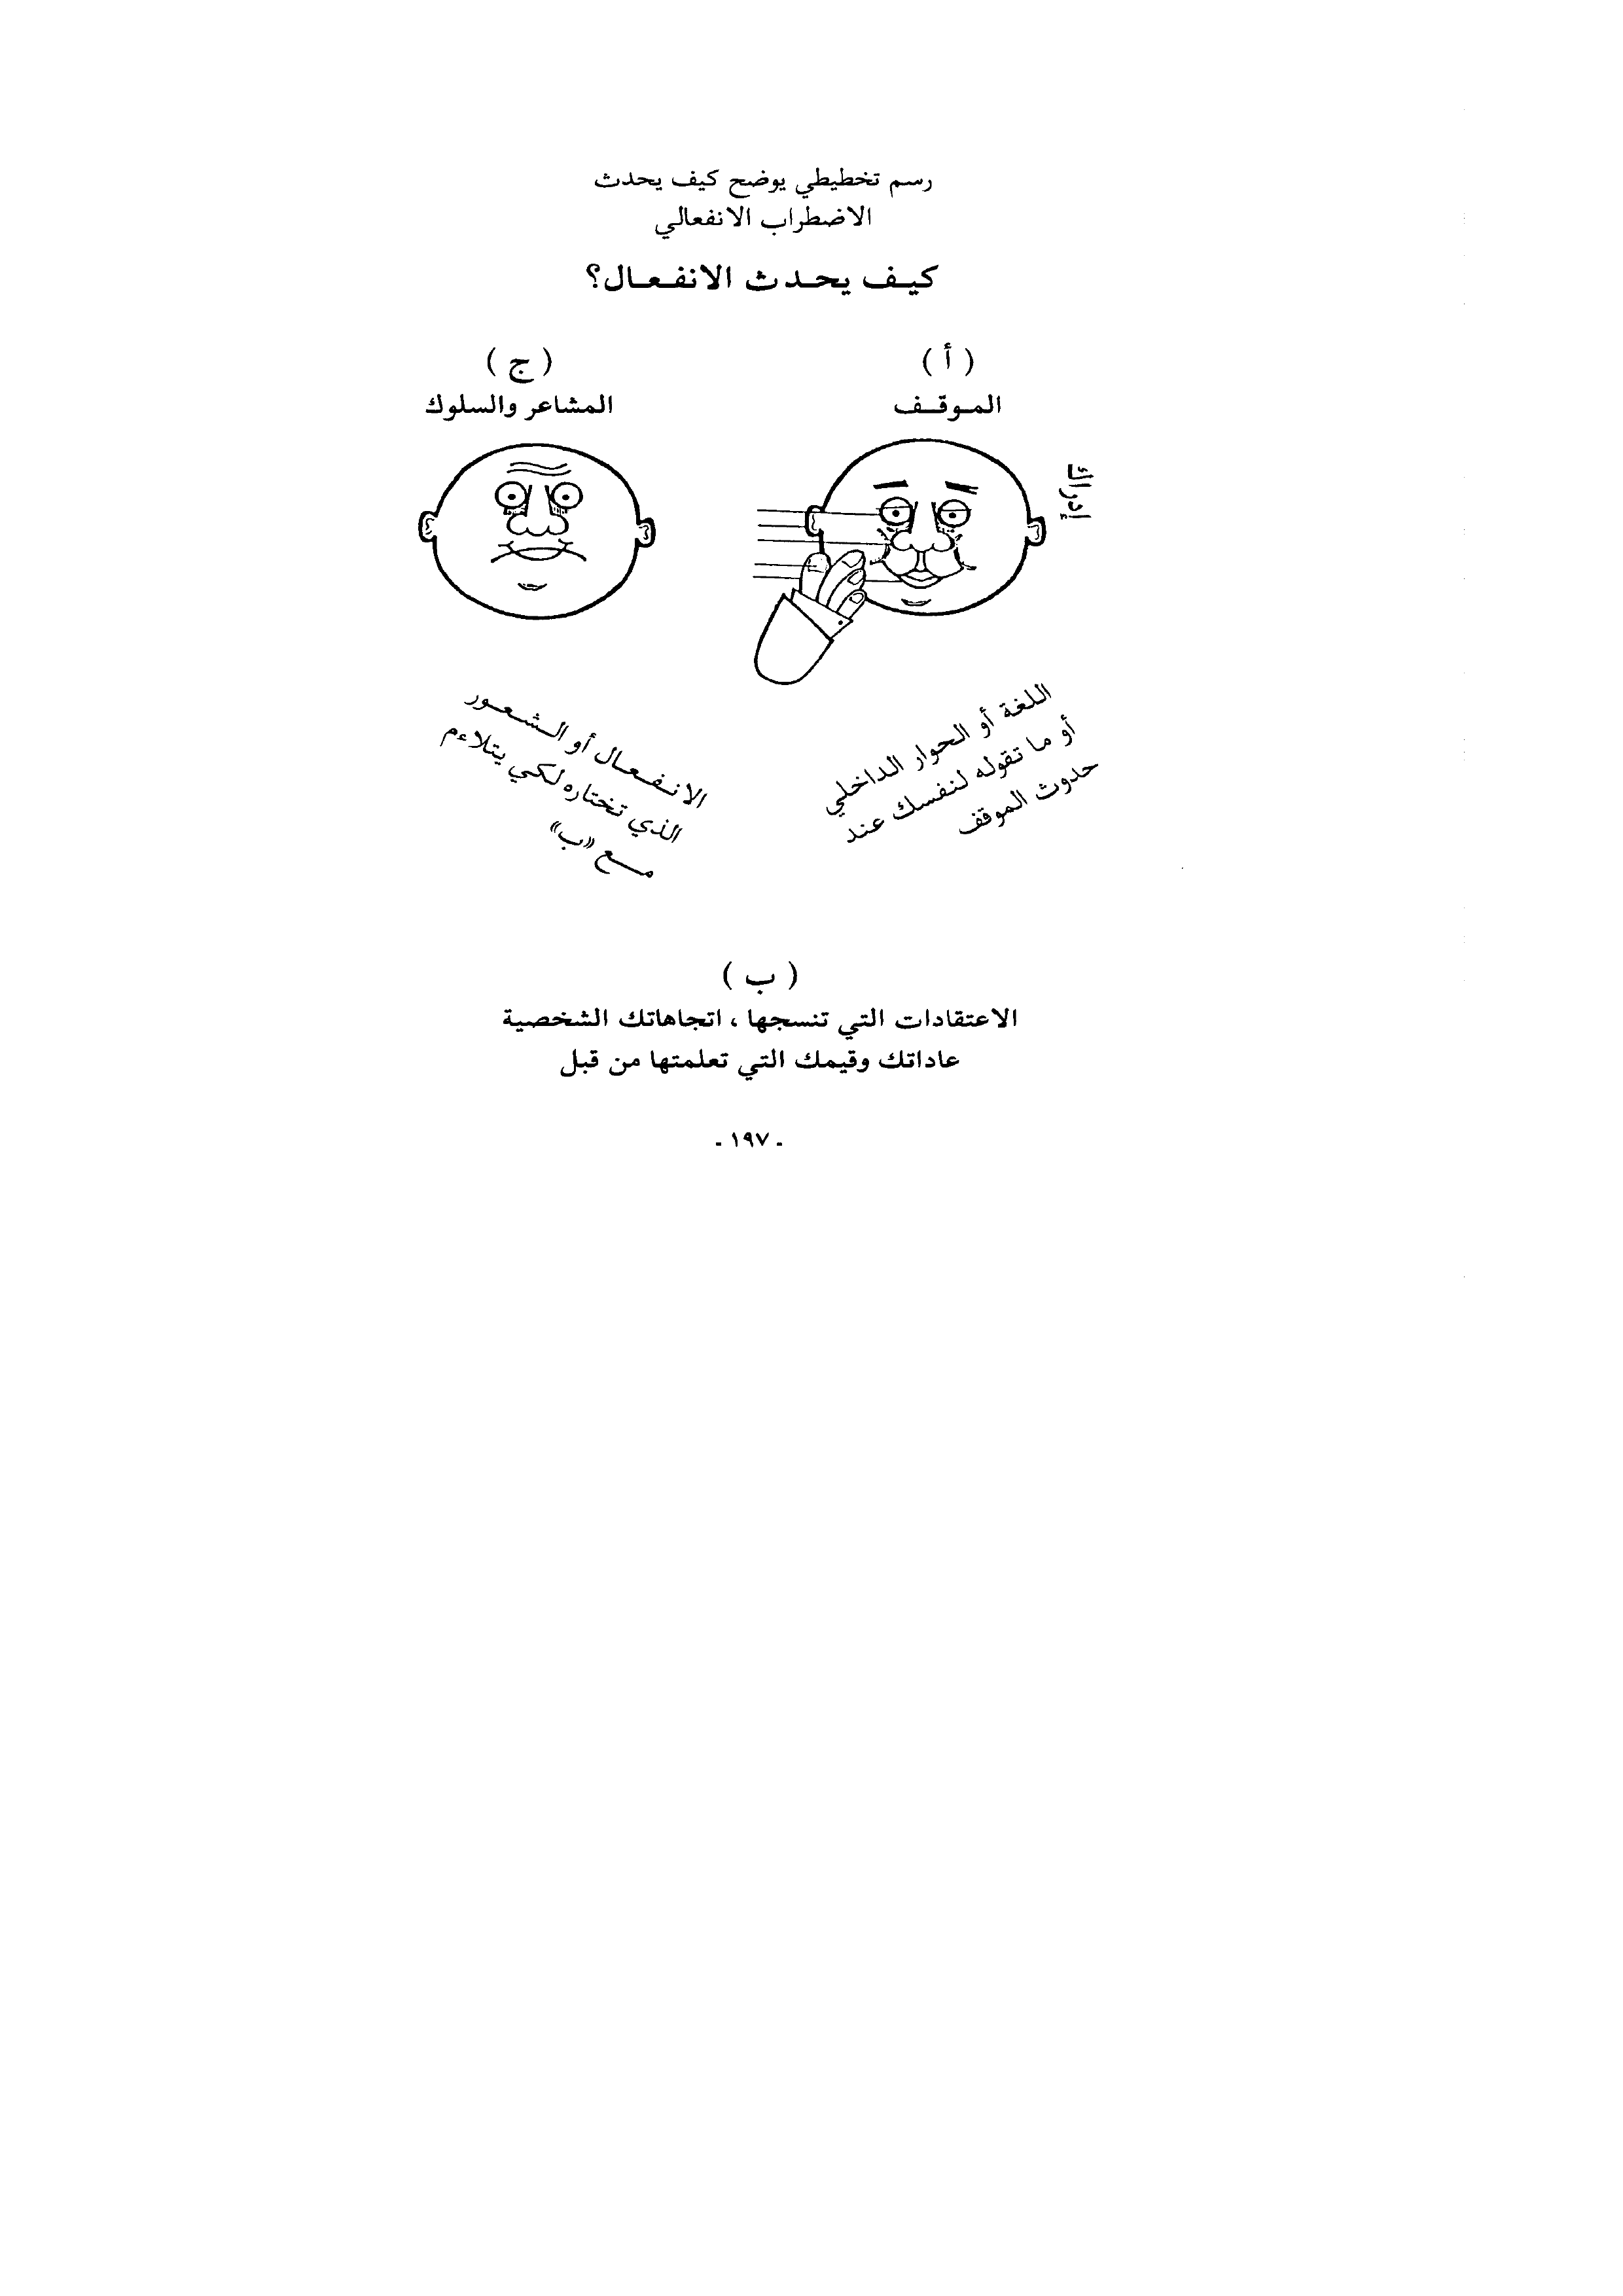 رسم تخطيطي يوضح كيف يحدث
الاضطراب الانفعالي
كيف يحدث الانفعال؟
( أ )
الموقف
إدراك
( ج )
المشاعر والسلوك
اللغة أو الحوار الداخلي
أو ما تقوله لنفسك عند
حدوث الموقف
الانفعال أو الشعور
الذي تختاره لكي يتلاءم
مع «ب»
( ب )
الاعتقادات التي تنسجها ، اتجاهاتك الشخصية
عاداتك وقيمك التي تعلمتها من قبل
- ١٩٧ -